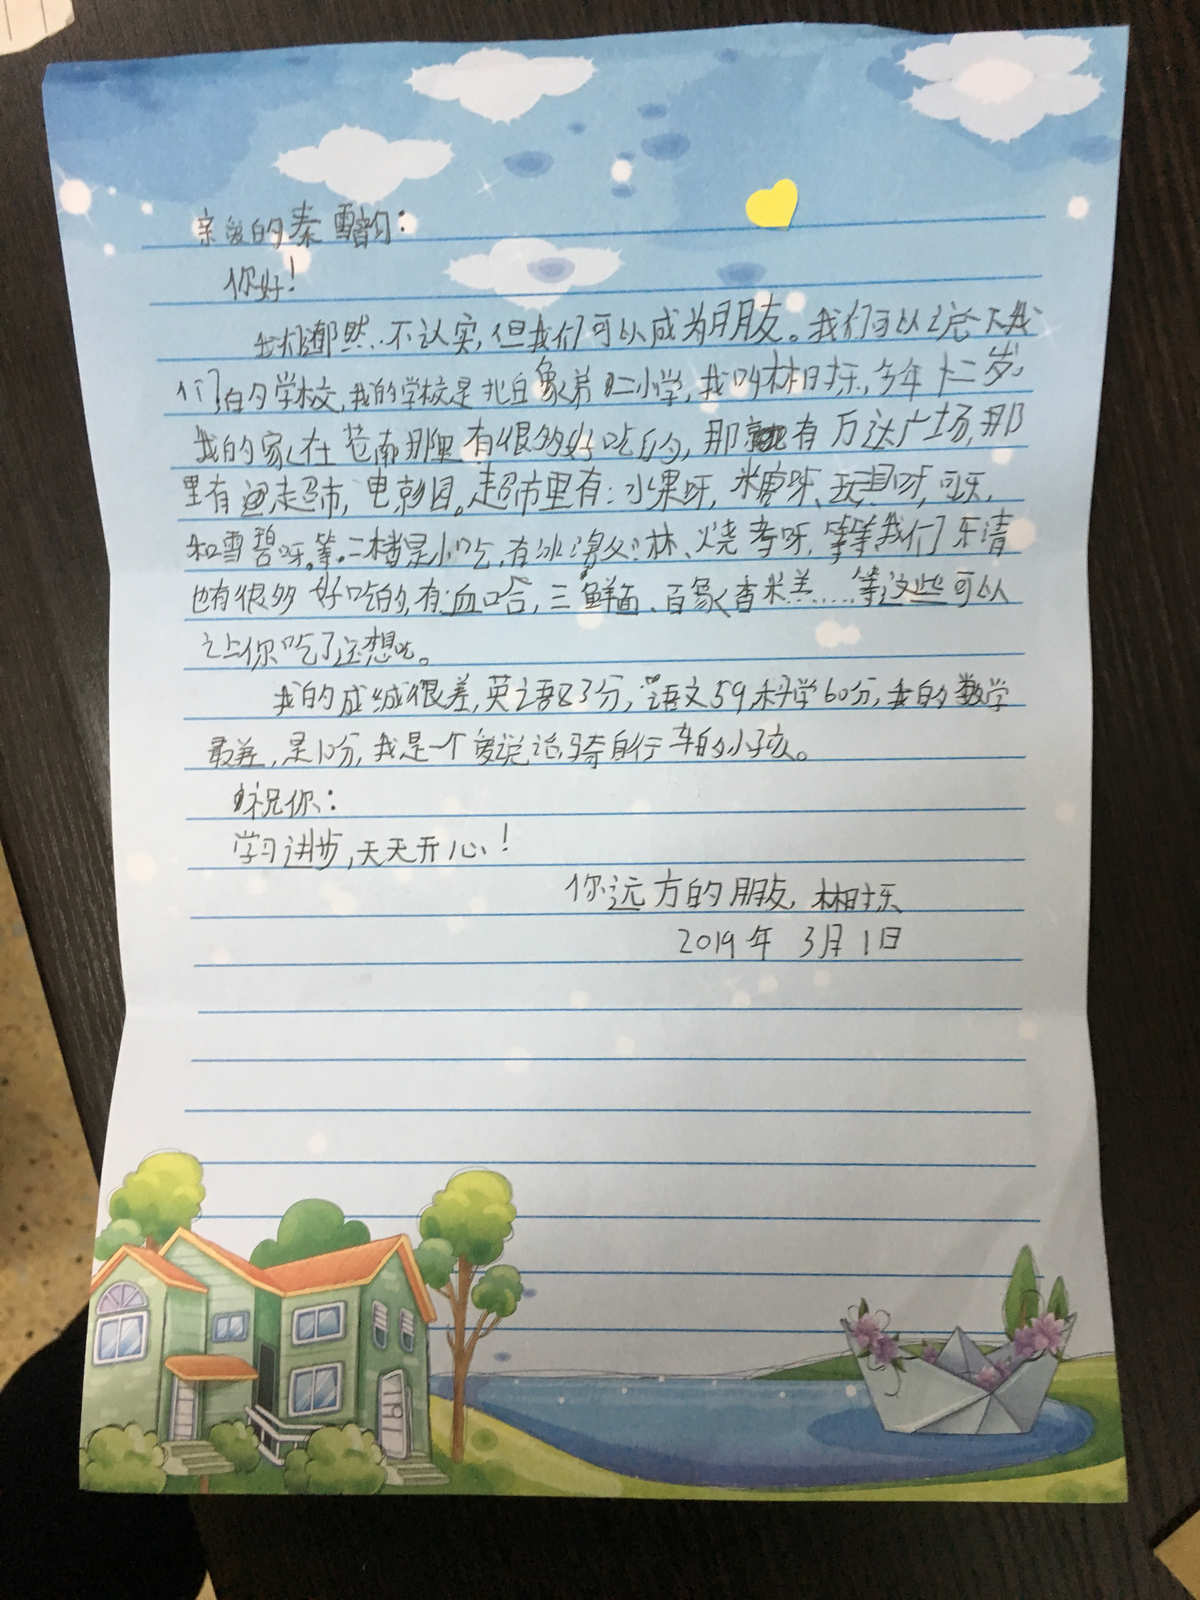 亲爱的秦雪韵：
你好！
我们虽然不认实，但我们可以成为朋友。我们可以说下我
们的学校，我的学校是北白象第二小学，我叫林相乐，今年十二岁。
我的家在苍南那里有很多好吃的，那就有万达广场，那
里有超市，电影园。超市里有：水果呀，米呀、玩具呀，可乐，
和雪碧呀。等。二楼是小吃，有冰激凌林、烧考呀，等等我们乐清
也有很多好吃的，有血哈，三鲜面、百象香米羔……等这些可以
让你吃了还想吃。
我的成绩很差，英语83分，语文59，科学60分，我的数学
最差，是10分，我是一个爱说话，骑自行车的小孩。
祝你：
学习进步，天天开心！
你远方的朋友，林相乐
2019年 3月1日